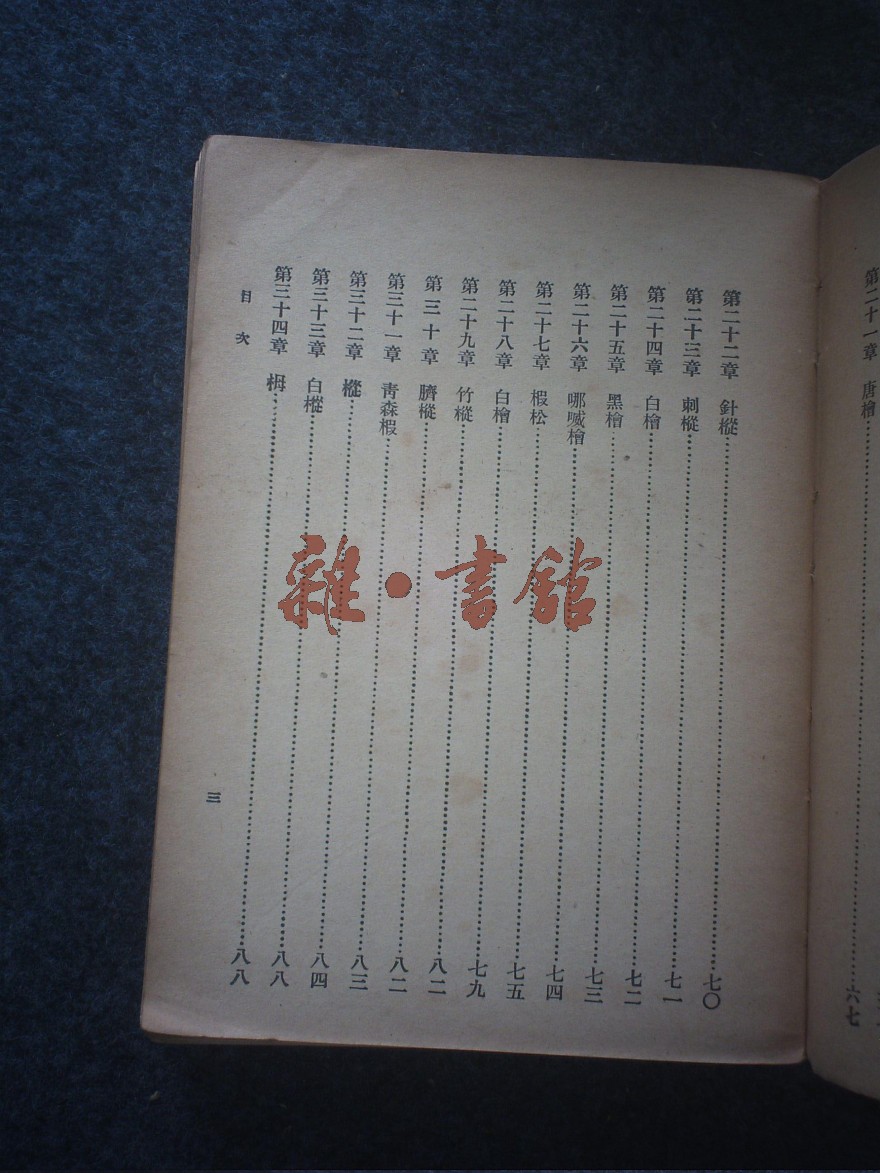 第二十一章 唐檜……六七
第二十二章 針樅……七〇
第二十三章 刺樅……七一
第二十四章 白檜……七二
第二十五章 黑檜……七三
第二十六章 哪喴檜……七四
第二十七章 椵松……七五
第二十八章 白檜……七九
第二十九章 竹樅……八二
第三十章 臍樅……八二
第三十一章 靑森椵……八三
第三十二章 樅……八四
第三十三章 白樅……八八
第三十四章 栂……八八
目次
三
雜·書館